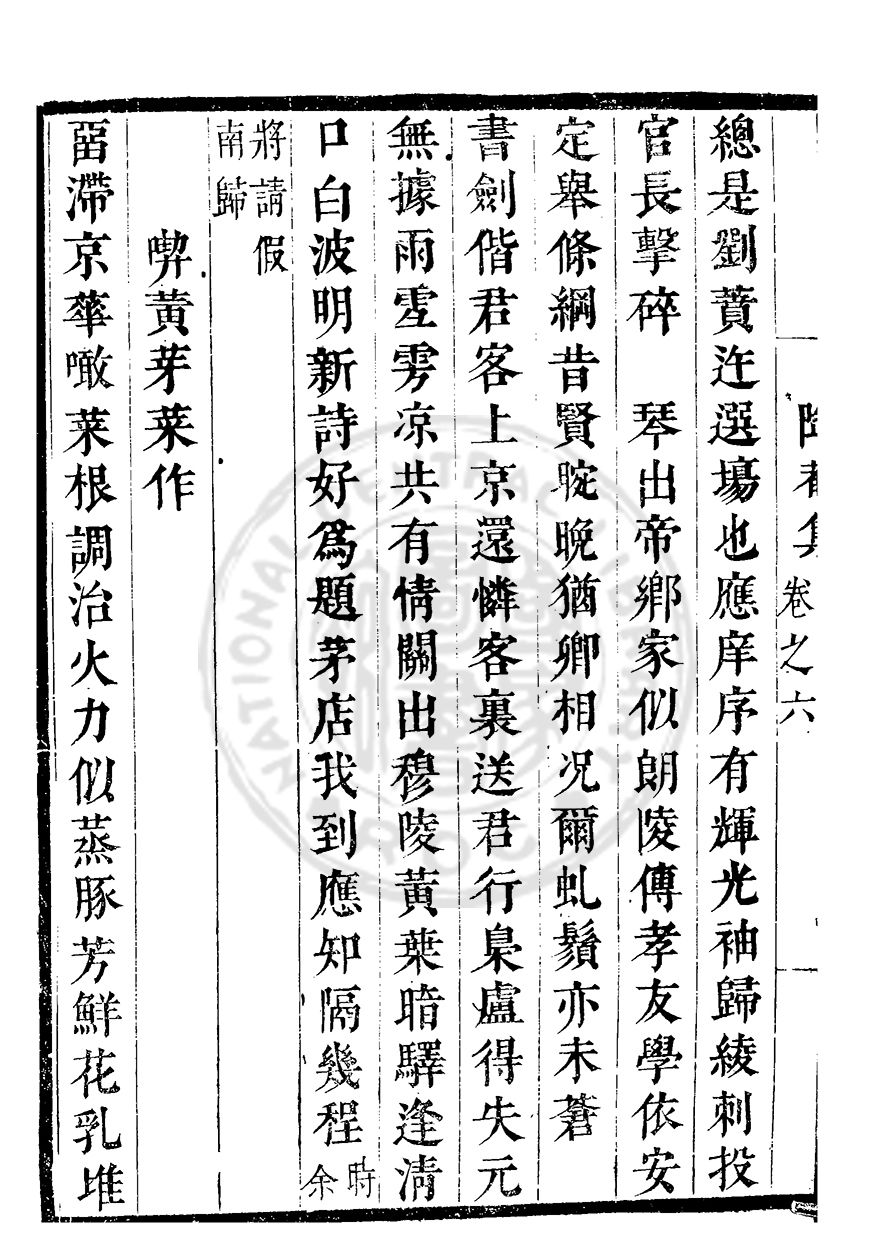 集卷之六
總是劉蕡迕選塲也應庠序有輝光袖歸綾刺投
官長擊碎　琴出帝鄉家似朗陵傳孝友學依安
定舉條綱昔賢晼晚猶卿相况爾虬鬚亦未蒼
書劍偕君客上京還憐客裏送君行梟盧得失元
無據雨雪雱凉共有情關出穆陵黃葉暗驛逢淸
口白波明新詩好爲題茅店我到應知隔幾程時余
將請假
南歸
喫黃芽菜作
畱滯京華噉菜根調治火力似蒸豚芳鮮花乳堆